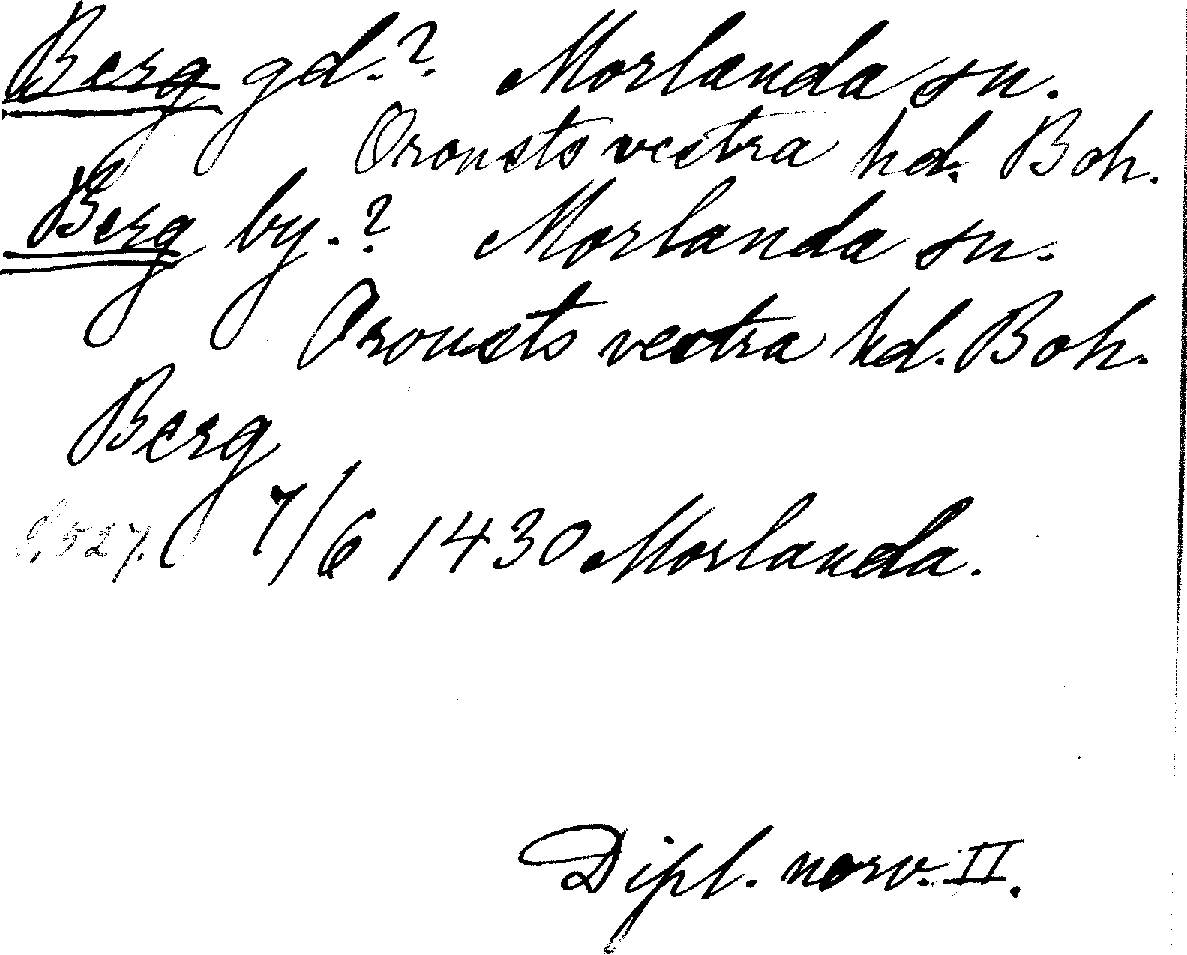 Berg gd.? Morlanda sn.
Orousts vestra hd. Boh.
Berg by.? Morlanda sn.
Orousts vestra hd. Boh.
Berg
s. 527. 7/6 1430 Morlanda.
Dipl. norv. II.